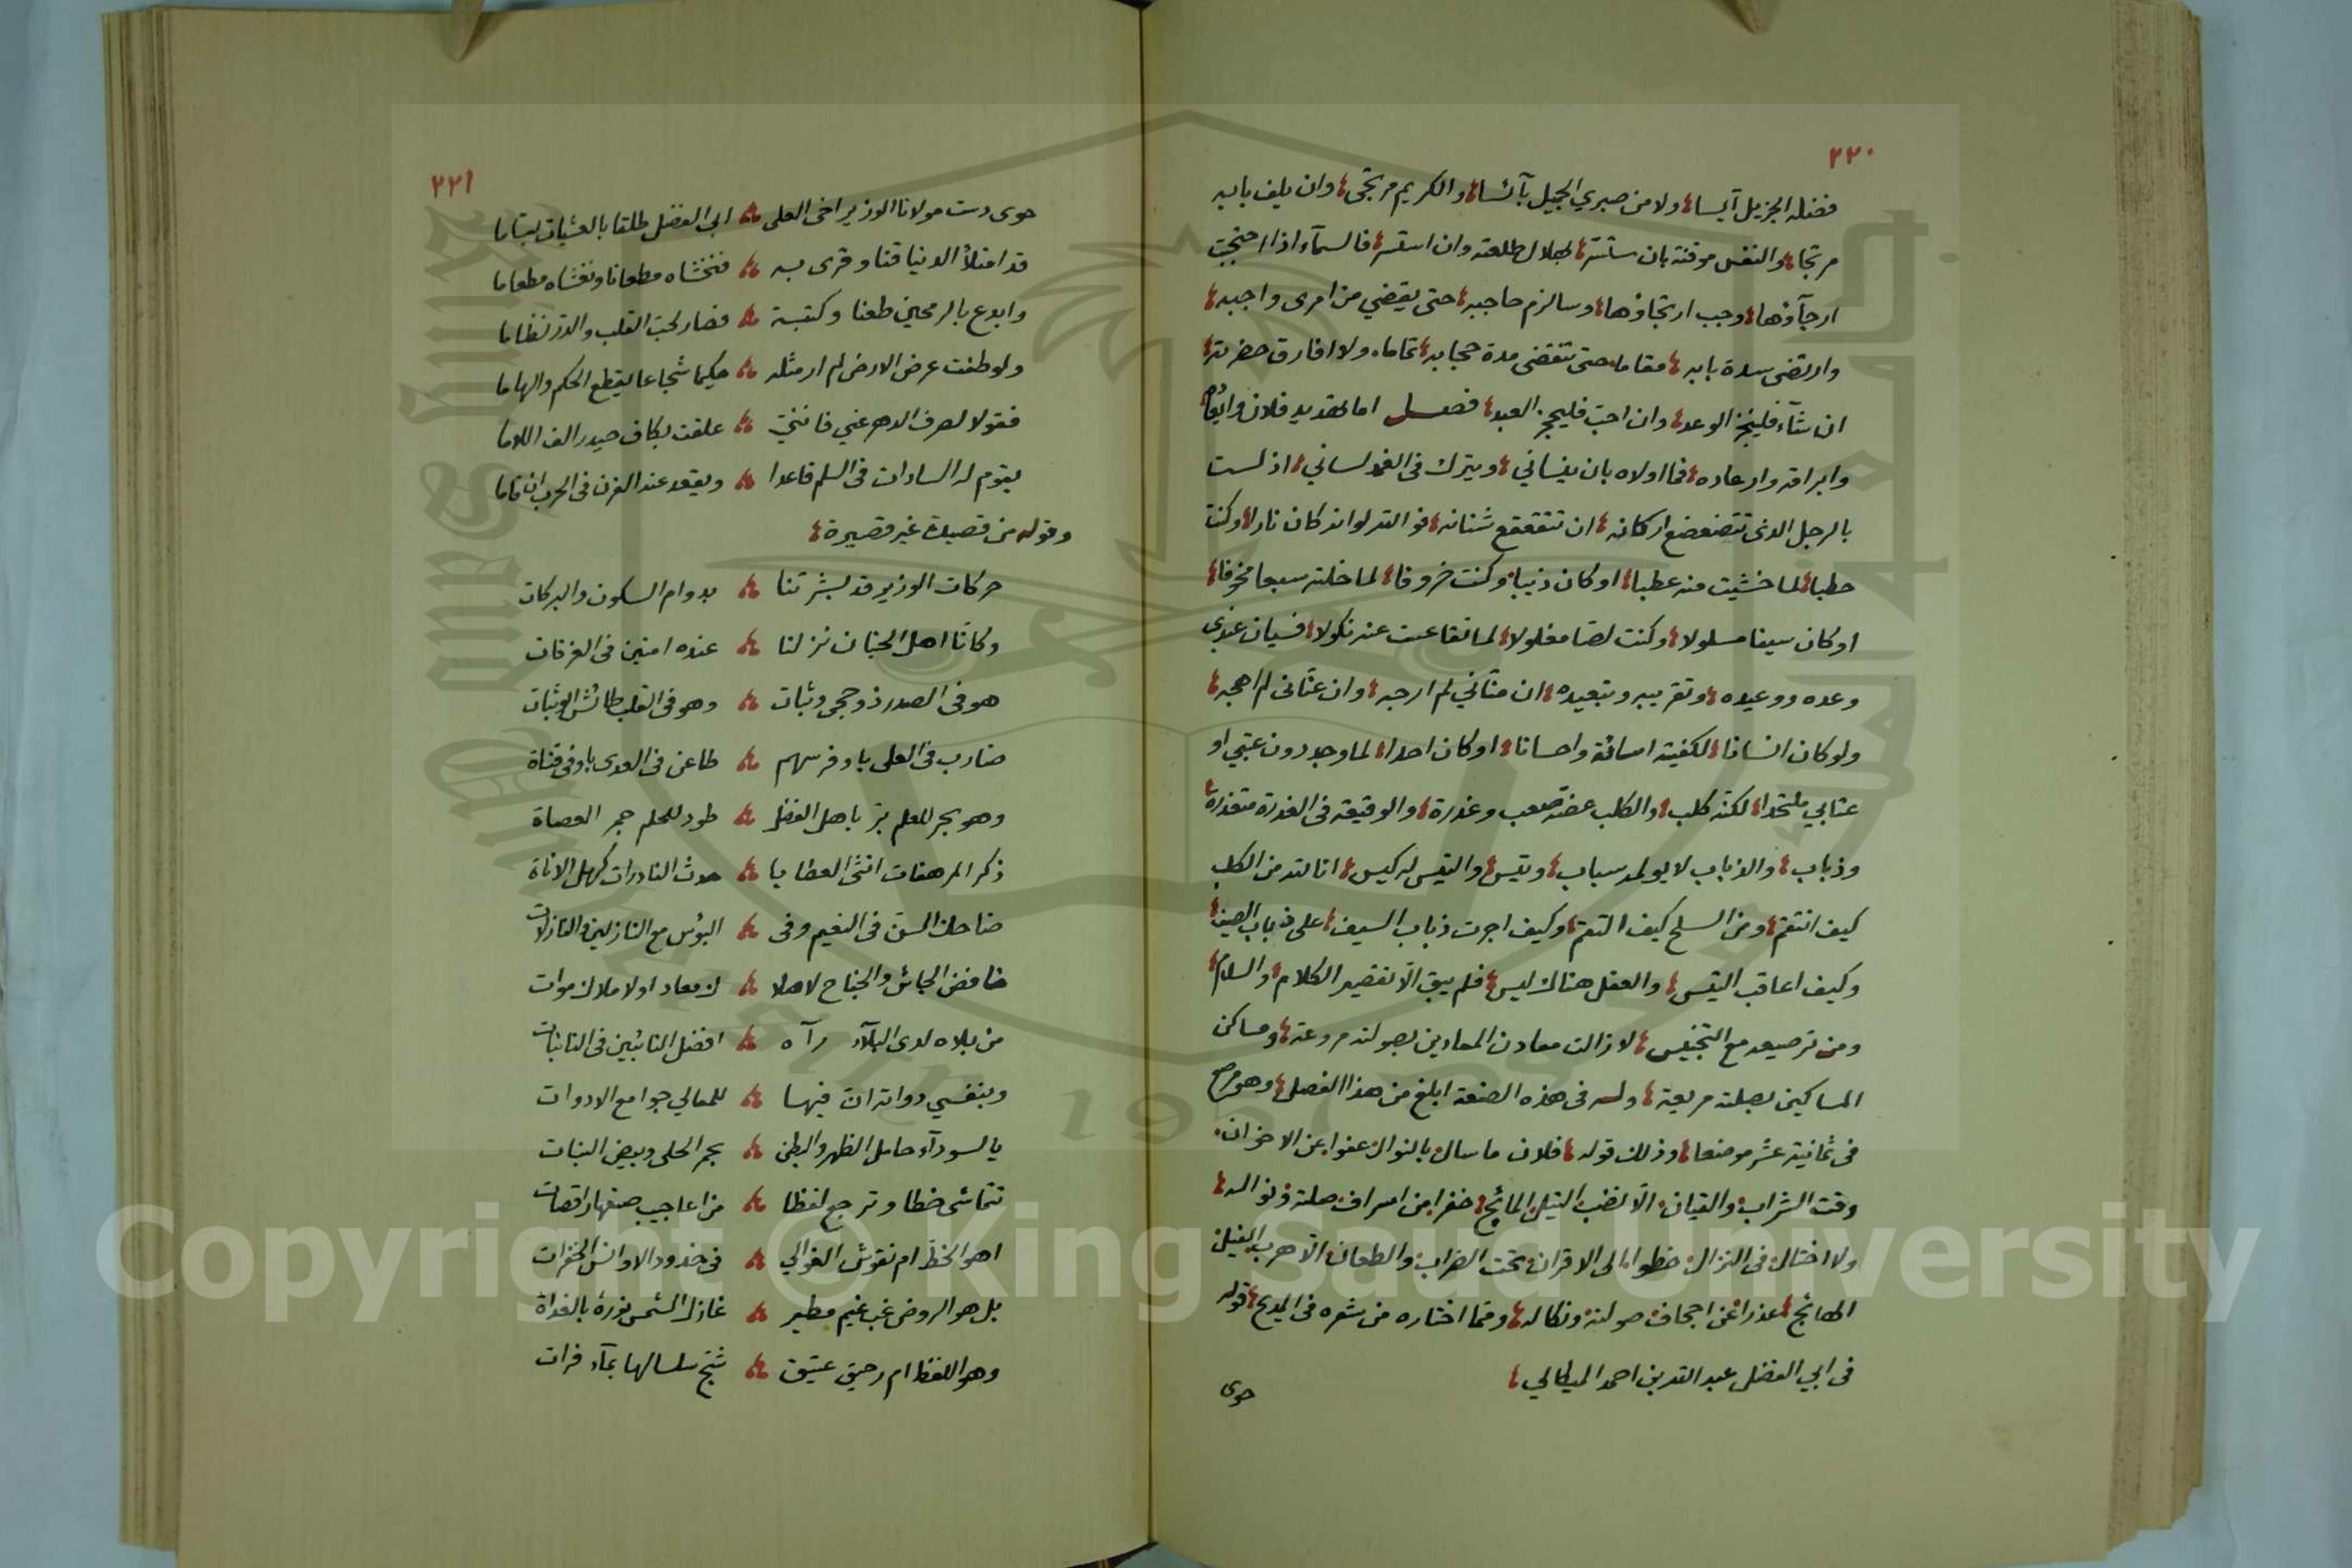 ٢٢٠
فضله الجزيل آيسا، ولا من صبري الجميل بآئسا، والكريم مرتجى، وان يلف بابه
مرتجا، والنفس موقنة بان ستسر، بهلال طلعته وان استسر، فالسمآء اذا احتجبت
ارجآؤها، وجب ارتجاؤها، وسالزم حاجبه، حتى يقضي من امرى واجبه،
وارتضى سدة بابه، مقاما، حتى تنقضى مدة حجابه، تماما، ولا افارق حضرته،
ان شآء فلينجز الوعد، وان احب فليحجز العبد، فصل اما تهديد فلان وايعاده
وابراقه وارعاده، فما اولاه بان ينساني، ويترك فى الغمد لساني، اذ لست
بالرجل الذى تتضعضع اركانه، ان تتقعقع شنانه، فوالله لو انه كان نارا، وكنت
حطبا، لما خشيت منه عطبا، او كان ذيبا، وكنت خروفا، لما خلته سبعا مخوفا،
او كان سيفا مسلولا، وكنت لصا مغلولا، لما تقاعست عنه نكولا، فسيان عندى
وعده ووعيده، وتقريبه وتبعيده، ان منّاني لم ارجه، وان عنّانى لم اهجه،
ولو كان انسانا، لكفيته اسائة واحسانا، او كان احدا، لما وجد دون عتبي او
عتابي ملتحدا، لكنه كلب، والكلب عضه صعب وعذرة، والوقيعة فى العذرة متعذرة،
وذباب، والذباب لا يولمه سباب، وتيس، والتيس له كيس، انا لله من الكلب
كيف انتقم، ومن السلح كيف التقم، وكيف اجرت ذباب السيف، على ذباب الصيف،
وكيف اعاقب التيس، والعقل هناك ليس، فلم يبق الّا تقصير الكلام، والسلام،
ومن ترصيعه مع التجنيس، لا زالت معادن المعادين بصولته مروعة، ومساكن
المساكين بصلته مريعة، وله فى هذه الصنعة ابلغ من هذا الفصل، وهو مرصع
فى ثمانية عشر موضعا، وذلك قوله، فلان ما سال بالنوال عفوا، عن الاخوان،
وقت الشراب والقيان، الّا نضب النيل المائج، خفرا من اسراف صلته ونواله،
ولا اختال فى النزال خطوا، الى الاقران، تحت الضراب والطعان، الّا هرب الفيل
الهائج، عذرا عن اجحاف صولته ونكاله، ومما اختاره من شعره فى المديح، قوله
فى ابي الفضل عبد الله بن احمد الميكالي،
حوى
٢٢١
حوى دست مولانا الوزير اخى العلى ابى الفضل طلقا بالعشيات بساما
قد امتلأ الدنيا قنا وقرى به فتخشاه مطعانا وتغشاه مطعاما
وابدع بالرمحين طعنا وكتبة فصار لحب القلب والدر نظاما
ولو طفت عرض الارض لم ار مثله حكيما شجاعا يقطع الحكم والهاما
فقولا لصرف الدهر عني فانني علقت بكاف حيدر الف اللاما
يقوم له السادات فى السلم قاعدا ويقعد عند القرن فى الحرب ان قاما
وقوله من قصيدة غير قصيرة،
حركات الوزير قد بشرتنا بدوام السكون والبركات
وكانّا اهل الجنان نزلنا عنده امنين فى الغرفات
هو فى الصدر ذو حجى وثبات وهو فى القلب طائش الوثبات
ضارب فى العلى باوفر سهم طاعن فى العدى باوفى قناة
وهو بحر للعلم بزّ باهل الفضل طود للحلم جم الحصاة
ذكر المرهفات انثى العطايا حدث النادرات كهل الاناة
ضاحك السن فى النعيم وفى البؤس مع النازلين والنازلات
خافض الجاش والجناح لاهلا ك معاد اولا ملاك موات
من بلاه لدى البلآء رآه افضل النائبين فى النائبات
وبنفسي دواته ان فيها للمعالي جوامع الادوات
يا لسودآء حامل الظهر والبطن بحمر الحلى وبيض البنات
تتماشى خطا وترجع لفظا من اعاجيب صنعها راقصات
اهو الخظّ ام نقوش الغوالي فى خدود الاوانس الخفرات
بل هو الروض غب غيم مطير غازل الشمس نوره بالغداة
وهو اللفظ ام رحيق عتيق شج سلسالها بمآء فرات